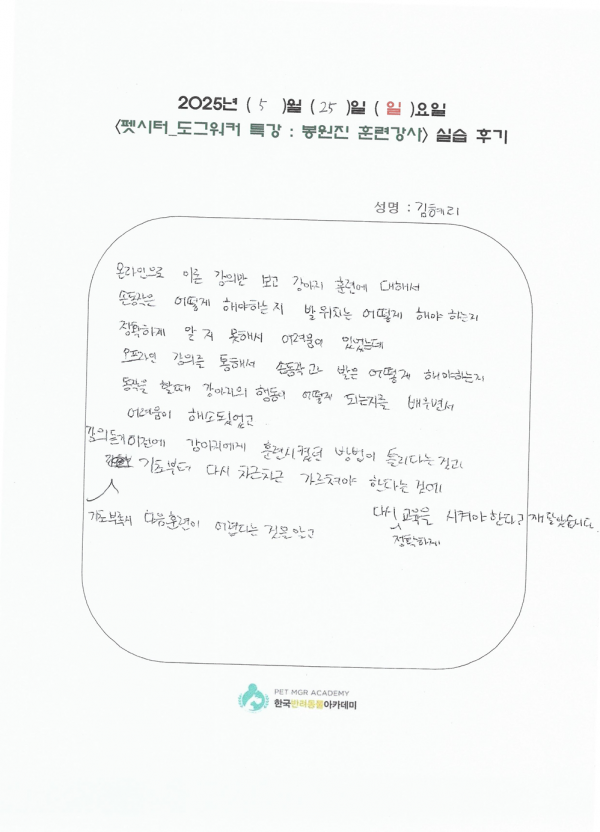 2025년 ( 5 )월 ( 25 )일 ( 일 )요일
<펫시터_도그워커 특강 : 봉원진 훈련강사> 실습 후기
성명 : 김혜리
온라인으로 이론 강의만 보고 강아지 훈련에 대해서
손동작은 어떻게 해야하는지 발위치는 어떻게 해야 하는지
정확하게 알 지 못해서 어려움이 있었는데
오프라인 강의를 통해서 손동작과 발은 어떻게 해야하는지
동작을 할때 강아지의 행동이 어떻게 되는지를 배우면서
어려움이 해소되었고
강의듣기이전에 강아지에게 훈련시켰던 방법이 틀리다는 걸고
기초부터 다시 차근차근 가르쳐야 한다는 것에
기초부족시 다음훈련이 어렵다는 것을알고
다시 교육을 시켜야한다고 깨달았습니다.
정확하게
PET MGR ACADEMY
한국반려동물아카데미